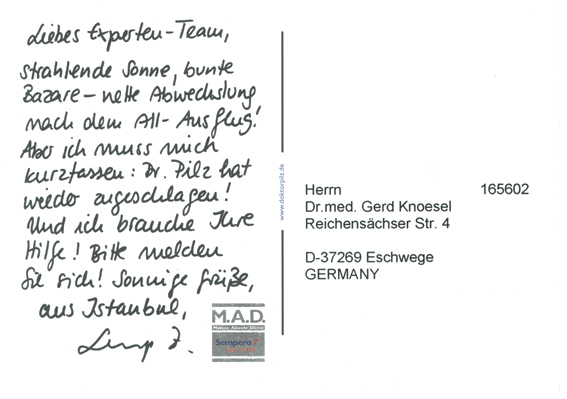 Liebes Experten-Team,
strahlende Sonne, bunte
Bazare – nette Abwechslung
nach dem All-Ausflug!
Aber ich muss mich
kurzfassen: Dr. Pilz hat
wieder zugeschlagen!
Und ich brauche Ihre
Hilfe! Bitte melden
Sie sich! Sonnige Grüße,
aus Istanbul,
M.A.D.
Sempera 7
www.doktorpilz.de
Herrn 165602
Dr.med. Gerd Knoesel
Reichensächser Str. 4
D-37269 Eschwege
GERMANY